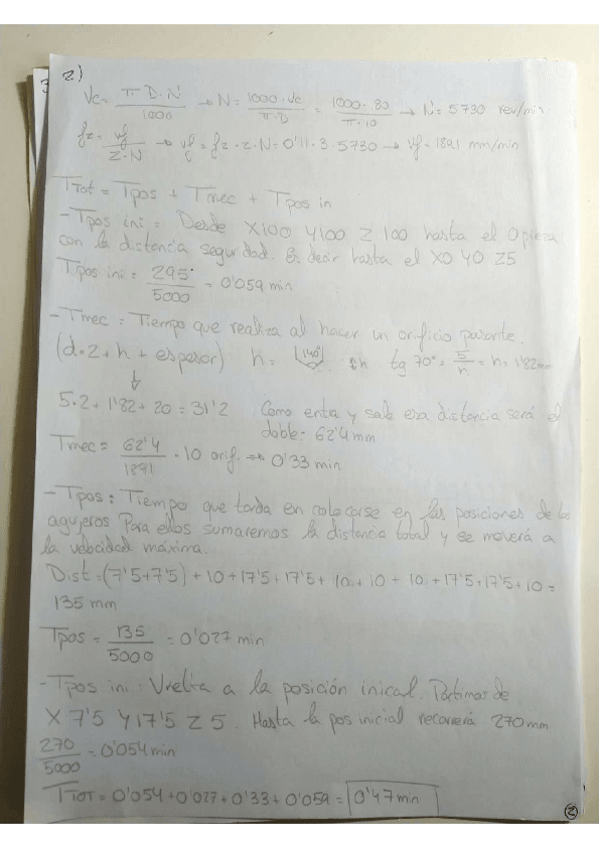 2)
Vc = π·D·N / 1000 → N = 1000·Vc / π·D = 1000·80 / π·10 → N = 5730 rev/min
fz = vf / Z·N → vf = fz·z·N = 0'11·3·5730 → Vf = 1891 mm/min
TTot = Tpos + Tmec + Tpos in
- Tpos ini = Desde X100 Y100 Z100 hasta el 0 pieza
con la distancia seguridad. Es decir hasta el X0 Y0 Z5
Tpos ini = 295 / 5000 = 0'059 min
- Tmec = Tiempo que realiza al hacer un orificio pasante.
(d·2 + h + espesor) h = 140° h tg 70° = 5/h = h = 1'82mm
5·2 + 1'82 + 20 = 31'2 Como entra y sale esa distancia será el
doble: 62'4 mm
Tmec = 62'4 / 1891 · 10 orif. ⇒ 0'33 min
- Tpos: Tiempo que tarda en colocarse en las posiciones de los
agujeros Para ellos sumaremos la distancia total y se moverá a
la velocidad máxima.
Dist = (7'5+7'5) + 10 + 17'5 + 17'5 + 10 + 10 + 10 + 17'5 + 17'5 + 10 =
135 mm
Tpos = 135 / 5000 = 0'027 min
- Tpos ini: Vuelta a la posición inical. Partimos de
X 7'5 Y 17'5 Z 5. Hasta la pos inicial recorrerá 270mm
270 / 5000 = 0'054 min
TTOT = 0'054 + 0'027 + 0'33 + 0'059 = 0'47 min
2